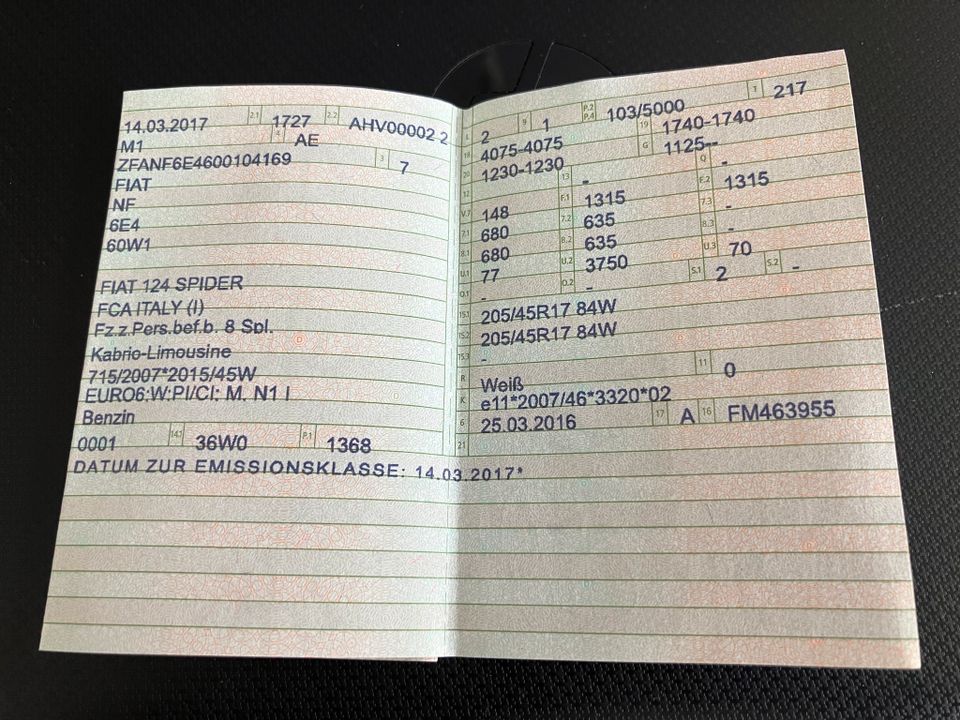 14.03.2017 2.1 1727 2.2 AHV00002 2
M1 4 AE
ZFANF6E4600104169 3 7
FIAT
NF
6E4
60W1
FIAT 124 SPIDER
FCA ITALY (I)
Fz.z.Pers.bef.b. 8 Spl.
Kabrio-Limousine
715/2007*2015/45W
EURO6:W:PI/CI: M, N1 I
Benzin
0001 14.1 36W0 P.1 1368
DATUM ZUR EMISSIONSKLASSE: 14.03.2017*
L 2 9 1 P.2 P.4 103/5000 T 217
18 4075-4075 19 1740-1740
20 1230-1230 G 1125--
12 - 13 - Q -
V.7 148 F.1 1315 F.2 1315
7.1 680 7.2 635 7.3 -
8.1 680 8.2 635 8.3 -
U.1 77 U.2 3750 U.3 70
O.1 - O.2 - S.1 2 S.2 -
15.1 205/45R17 84W
15.2 205/45R17 84W
15.3 -
R Weiß 11 0
K e11*2007/46*3320*02
6 25.03.2016 17 A 16 FM463955
21